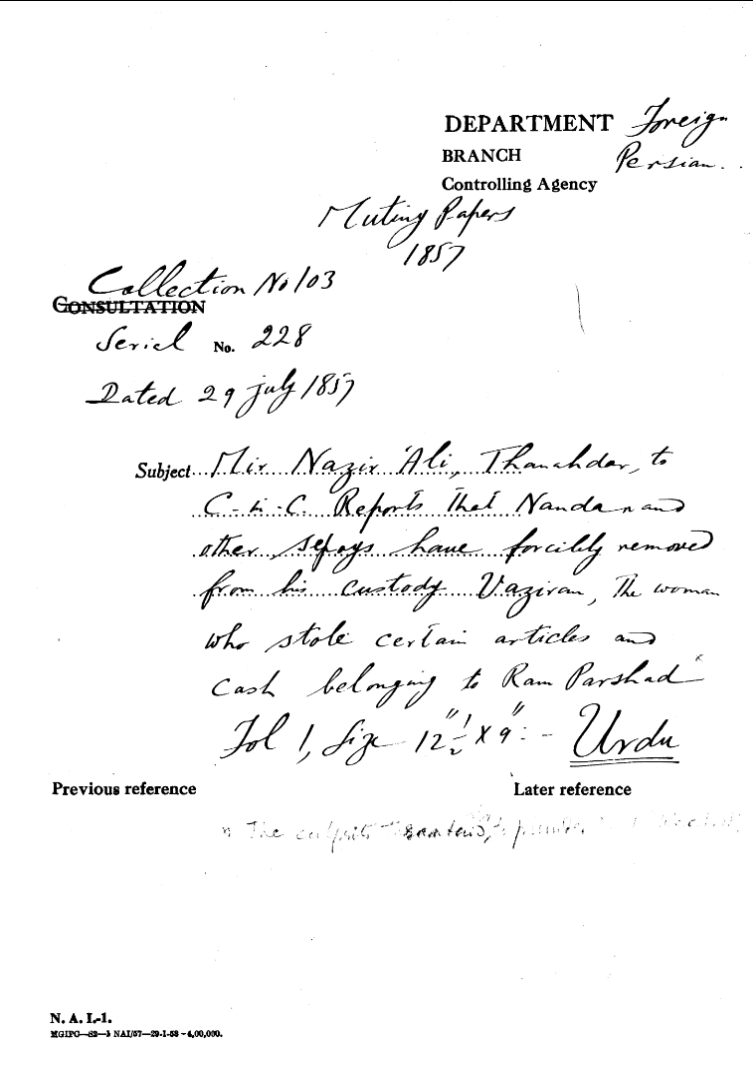 DEPARTMENT Foreign
BRANCH Persian.
Controlling Agency
Mutiny Papers
1857
Collection No 103
CONSULTATION
Seriel No. 228
Dated 29 july 1857
Subject Mir Nazir 'Ali, Thanahdar, to
C-in-C. Reports that Nandan and
other sepoys have forcibly removed
from his custody Vaziran, the woman
who stole certain articles and
cash belonging to Ram Parshad
Fol 1, Size 12"½ x 9":- Urdu
Previous reference Later reference
The culprit
N. A. I.-1.
MGIPC—S2—5 NAI/57—29-1-58—4,00,000.